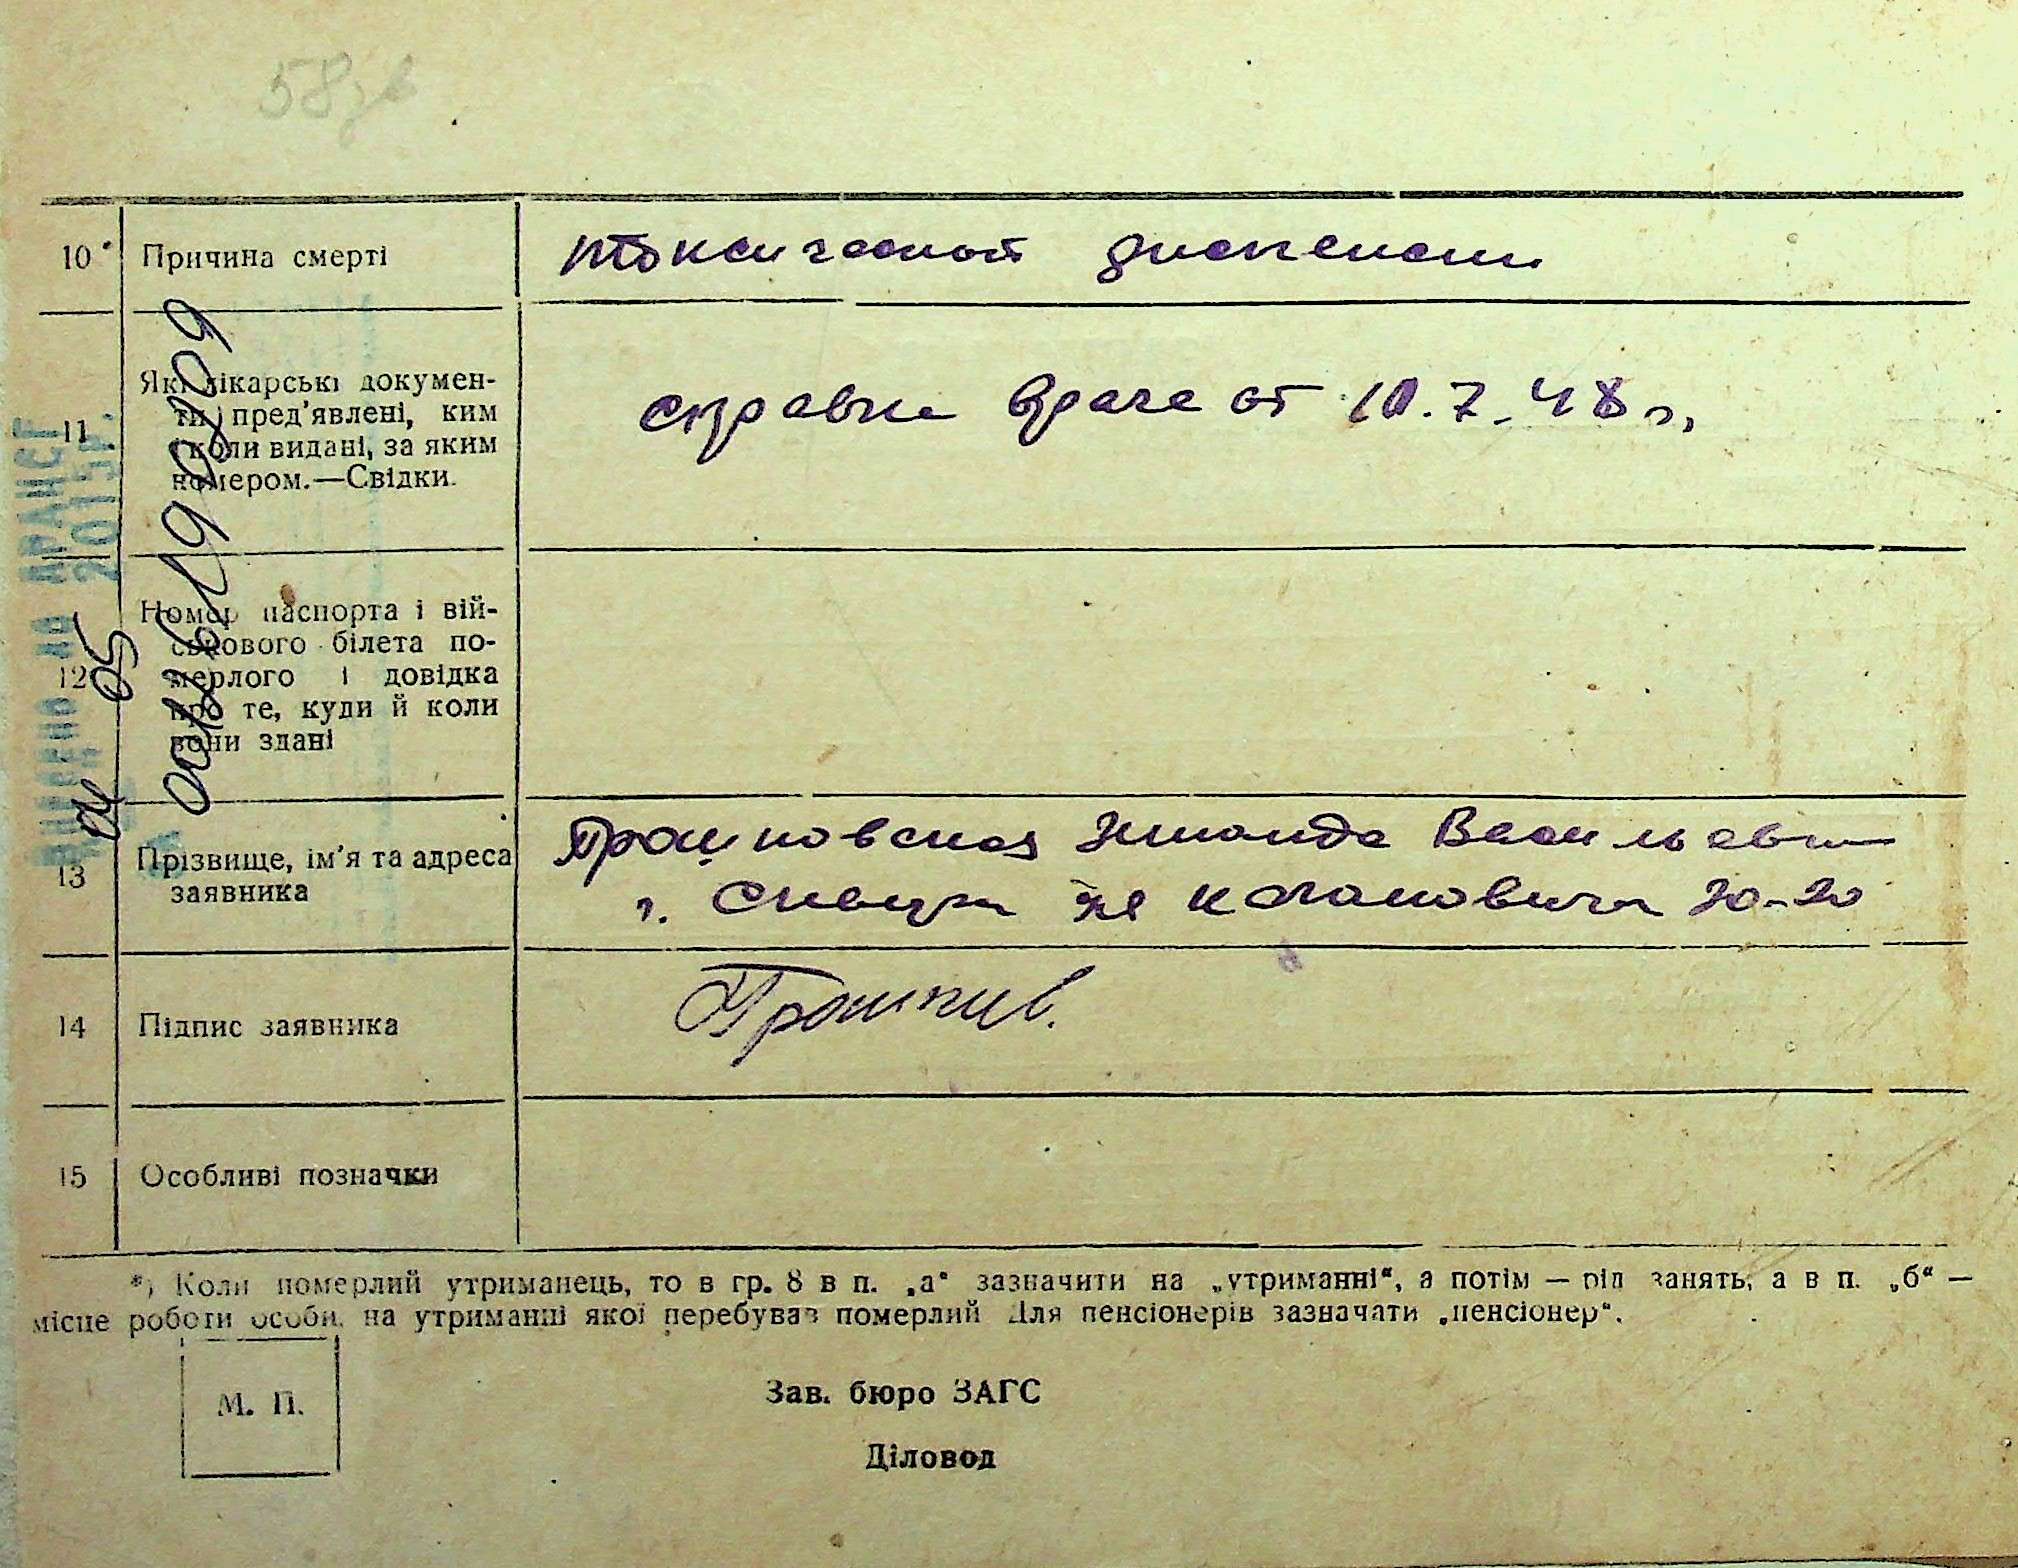 58
10 Причина смерті
токсической диспепсии
11 Які лікарські докумен-
ти пред'явлені, ким
і коли видані, за яким
номером.—Свідки.
справка врача от 10.7.48 г.
12 Номер паспорта і вій-
ськового білета по-
мерлого і довідка
про те, куди й коли
вони здані
13 Прізвище, ім'я та адреса
заявника
Васильевна
г. Кагановича 20-20
14 Підпис заявника
15 Особливі позначки
*) Коли померлий утриманець, то в гр. 8 в п. „а“ зазначити на „утриманні“, а потім — рід занять, а в п. „б“ —
місце роботи особи, на утриманні якої перебував померлий Для пенсіонерів зазначати „пенсіонер“.
М. П.
Зав. бюро ЗАГС
Діловод